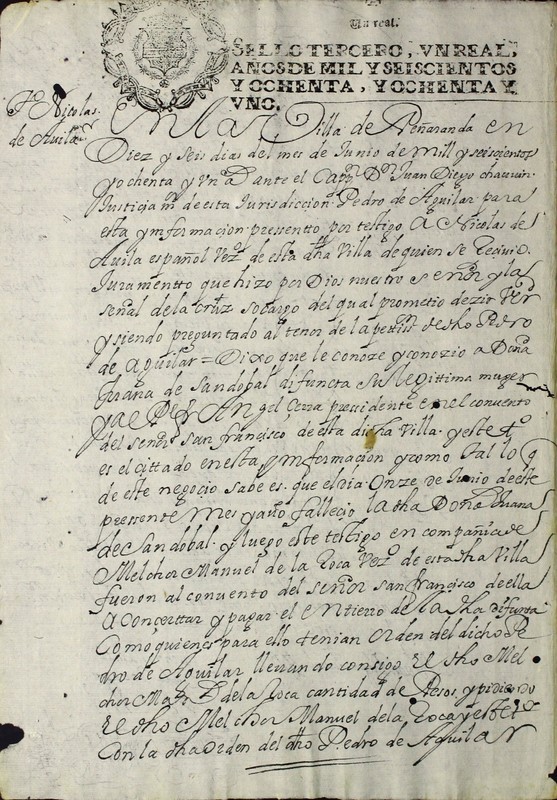 Un real.
SELLO TERCERO, VN REAL,
AÑOS DE MIL Y SEISCIENTOS
Y OCHENTA, Y OCHENTA Y
VNO.
Tº Nicolas
de Auila
En la Villa de Peñaranda en
Diez y seis dias del mes de Junio de mill y seiscientos
y ochenta y Vn aº ante el Capn Dn Juan Diego chauarin
Justicia mr de esta Jurisdiccion. Pedro de Aguilar para
esta ynformacion presentto por testigo A Nicolas de
Auila español Vezº de esta dha Villa de quien se Reciuio
Juramentto que hizo por Dios nuestro señor y la
señal de la cruz so cargo del qual prometio dezir Verd
y siendo preguntado al tenor de la pettin de dho Pedro
de Aguilar = Dixo que le conoze y conozio a Doña
Juana de Sandobal difuncta su legittima muger
y a el Pe fr Angel Cerra pressidente en el conuento
del señor san francisco de esta dicha Villa. y este tº
es el cittado en esta ynformacion y como tal lo q
de este negocio sabe es. que el dia Onze de Junio de este
pressente mes y año fallecio la dha Doña Juana
de Sandobal. y luego este testigo en compañia de
Melchor Manuel de la Roca Vezº de esta dha Villa
fueron al conuento del señor san francisco de ella
A Concerttar y pagar el entierro de la dha difunta
Como quienes para ello tenian orden del dicho Pe
dro de Aguilar lleuando consigo el dho Mel
chor Ml de la Roca cantidad de Pesos, y pidiendo
el dho Melchor Manuel de la Roca y este tº
Con la dha orden del dho Pedro de Aguilar